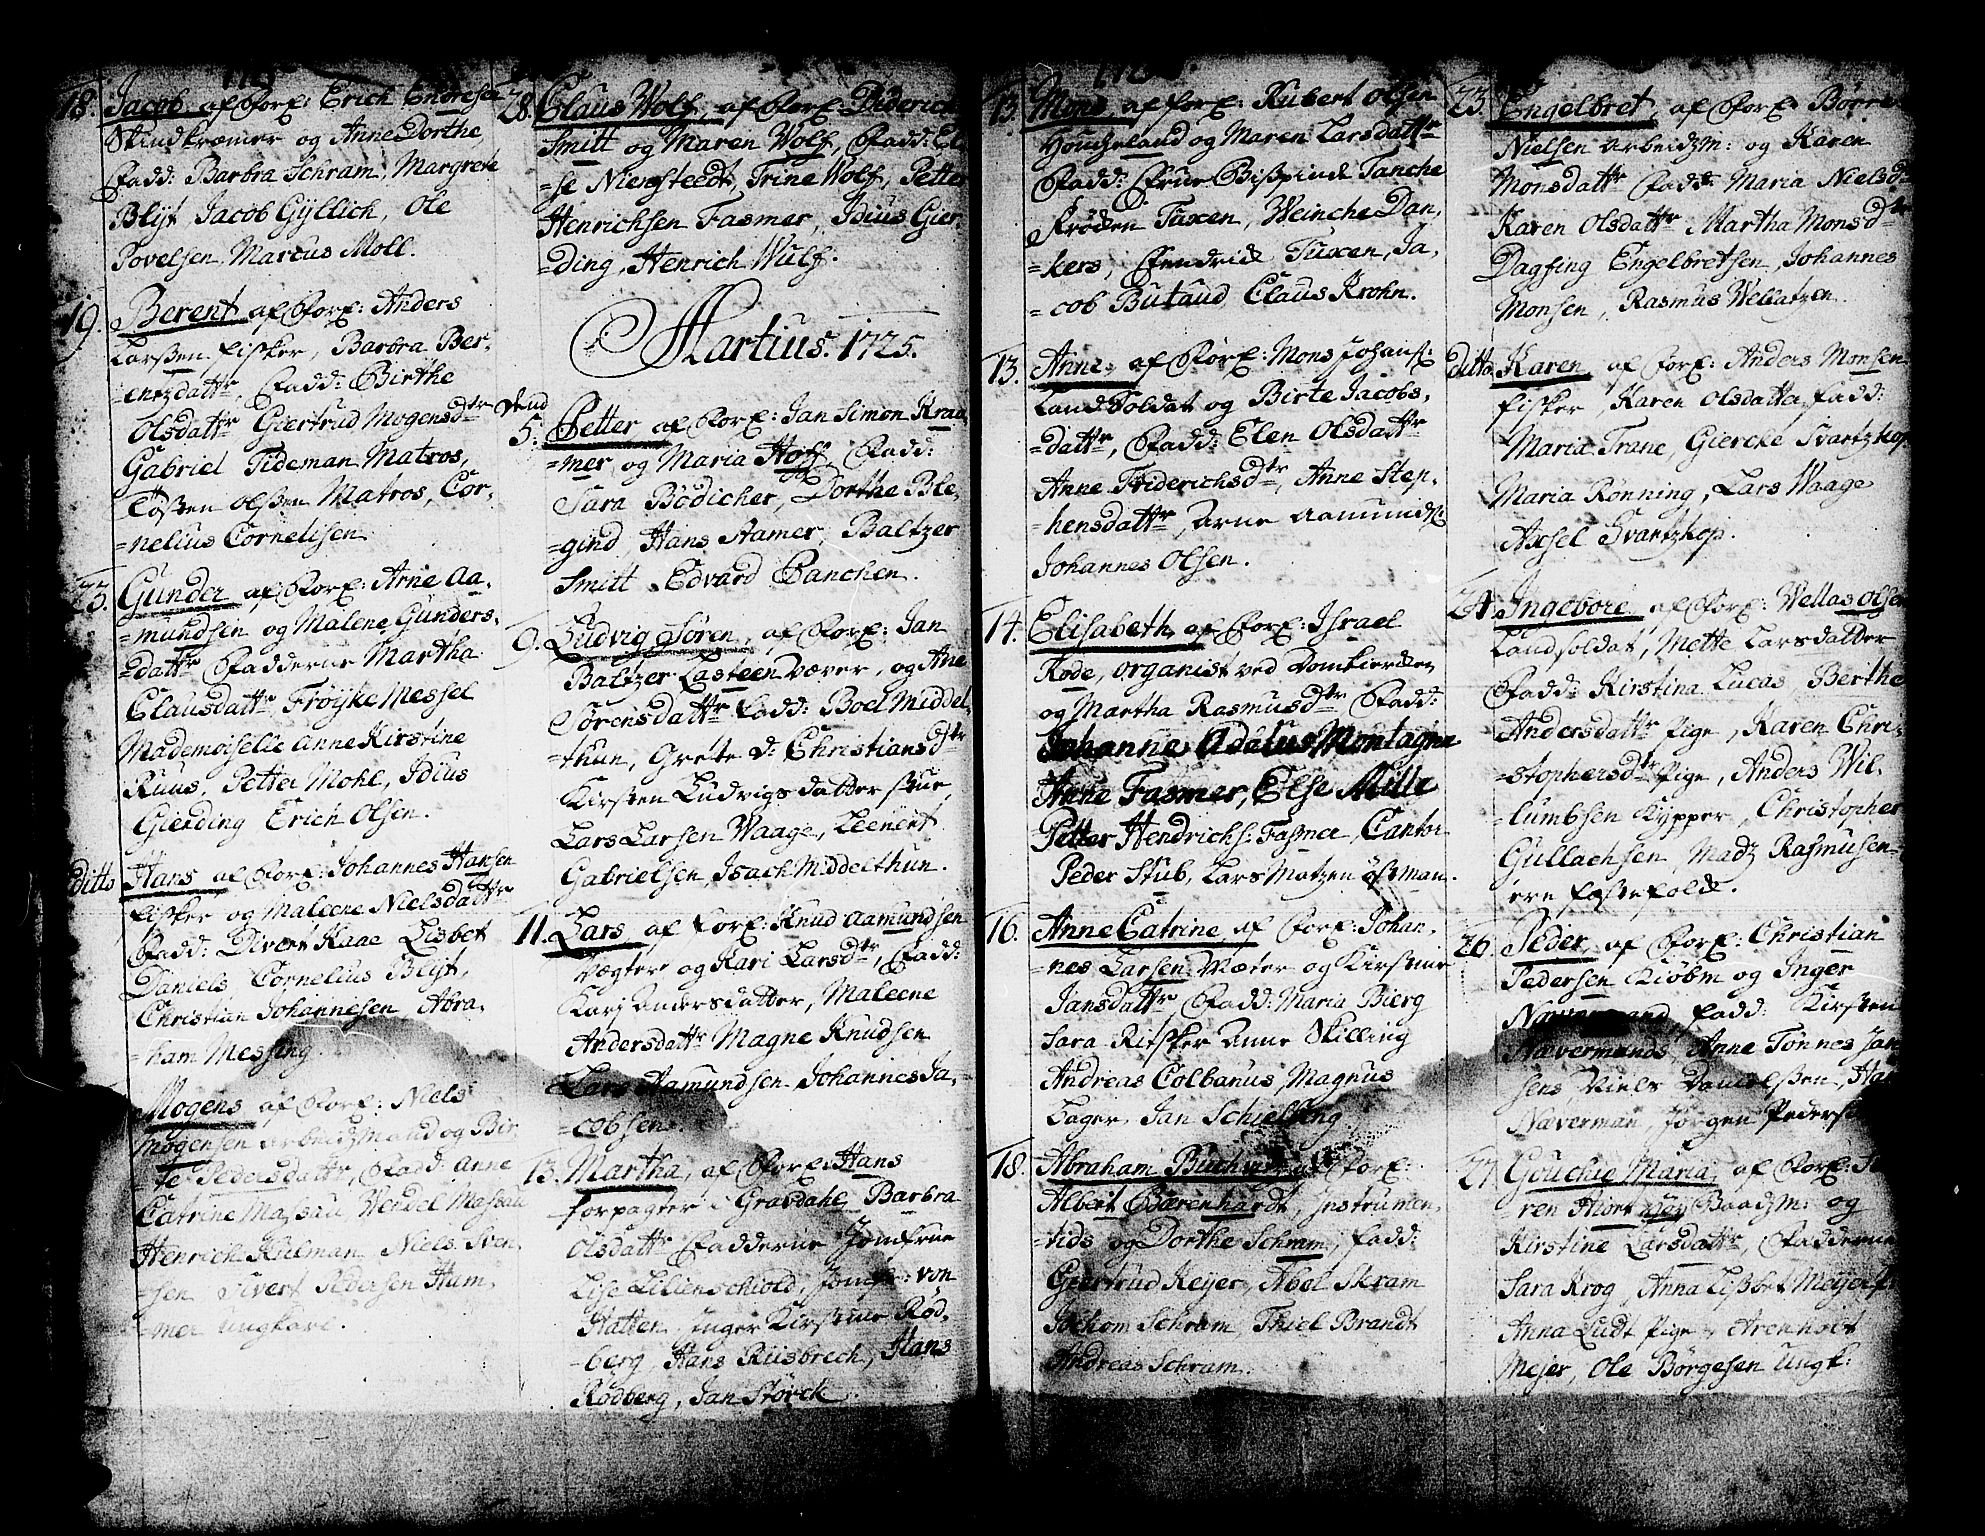 18. Jacob af For: Erich Endresen
Skindkræmer og Anne Dorthe,
Fadd: Barbra Schram, Margrete
Blijt, Jacob Gÿllich, Ole
Povelsen, Marcus Moll.
19. Berent af For: Anders
Larsen fisker, Barbra Ber-
=entzdattr, Fadd: Birthe
Olsdattr Giertrud Mogensdtr
Gabriel Tideman Matros,
Tosten Olsen Matros, Cor-
=nelius Cornelisen
25. Gunder af For: Arne Aa-
=mundsen og Malene Gunders-
=dattr Fadderne Martha
Clausdattr Frøijke Messel
Mademoiselle Anne Kirstine
Ruus, Petter Mohl, Idius
Gierding Erich Olsen.
ditto Hans af For: Johannes Hansen
fisker og Maleene Nielsdattr
Fadd: Divert Kaae Lisbet
Daniels Cornelius Blijt,
Christian Johannesen Abra-
=ham Messing.
Mogens af For: Niels
Mogensen Arbeidzmand og Bir-
te Pedersdattr, Fadd: Anne
Catrine Massau Wendel Massau
Henrich Kulman Niels Sven-
sen Sivert Pedersen Hum-
=mer ungkarl.
28. Claus Wolf, af For: Diderich
Smitt og Maren Wolf, Fadd: El-
=se Niensteedt, Trine Wolf, Petter
Henrichsen Fasmer, Idius Gier-
=ding, Henrich Wulf.
Martius. 1725.
5. Petter af For: Jan Simon Kraa-
=mer og Maria Hoff, Fadd:
Sara Bödicher, Dorthe Ble-
=gind Hans Aamer, Baltzer
Smitt Edvard Panchen.
9. Ludvig Sören, af For: Jan
Baltzer Casteen Væver, og Ane
Sörensdattr Fadd: Boel Middel-
=thun, Grete d: Christiansdtr
Kirsten Ludvigsdatter
Lars Larsen Waage, Leenert
Gabrielsen, Isach Middelthun.
11. Lars af For: Knud Aamundsen
Vægter og Kari Larsdtr, Fadd:
Kari Andersdatter, Maleene
Andersdattr Magne Knudsen
Lars Aamundsen Johannes Ja-
=cobsen
13. Martha, af For: Hans
forpagter i Gravdahl Barbra
Olsdattr Fadderne Jomfrue
Lise Lilienschiold, Jomfr: von
Hatten Inger Kirstine Röd-
=berg, Hans Risbrech, Hans
Rödberg, Jan Störck.
13. Mons, af For: Rubert Olsen
Houcheland og Maren Larsdattr
Fadd: Frue Bispinde Tanche
Frøden Tuxen, Weinche Dan-
=kers, Fendrich Tuxen, Ja-
=cob Butaud Claus Krohn.
13. Anne, af For: Mons Johans:
Land Soldat og Birte Jacobs-
=dattr, Fadd: Elen Olsdattr
Anne Friderichsdtr, Anne Step-
=hensdattr, Arne Aamunds:
Johannes Olsen.
14. Elisabeth af For: Israel
Rode, organist ved Domkierken
og Martha Rasmusdtr Fadd:
Johanne Adelus Montagne
Anne Fasmer, Else Mille
Petter Hendrichs: Fasmer Cantor
Peder Stub, Lars Matzen Östman.
16. Anne Catrine, af For: Johan-
=nes Larsen og Kirstine
Jansdattr Fadd: Maria Bierg
Sara Anne Skilling
Andreas Colbanus, Magnus
Lager, Jan Schielling
18. Abraham af For:
Albert Bærenhardt, Instrumen-
=tids og Dorthe Schram, Fadd:
Geertrud Keijer, Abel Skram
Jochom Schram, Thiel Brandt
Andreas Schram.
23. Engelbret, af For: Børre
Nielsen Arbeidzm: og Karen
Monsdattr Fadd: Maria Nielsd:
Karen Olsdattr Martha Monsdtr
Dagfing Engelbretsen, Johannes
Monsen, Rasmus Wellatzen.
ditto Karen af For: Anders Monsen
fisker, Karen Olsdatter Fadd:
Maria Trane, Giercke Svartzkop
Maria Rönning, Lars Waage
Axsel Svartzkop.
24. Ingeborg af For: Wellas Olsen
Landsoldat, Mette Larsdatter
Fadd: Kirstina Lucas, Berthe
Andersdattr Pige, Karen Chri-
=stophersdtr Pige, Anders Wil-
=lumbsen Kypper, Christopher
Gullachsen, Madz Rasmusen
ere festefolk.
26. Peder, af For: Christian
Pedersen Kiöbm og Inger
Nævermand Fadd: Kirsten
Nævermands, Anne Tönnes Jan-
sens, Niels Danielsen, Han
Næverman, Jörgen Peders
27. Gouchie Maria, af For: Sö-
=ren Hiort Baadzm: og
Kirstine Larsdattr, Fadderne
Sara Krog, Anna Lisbet Meijer
Anna Ludt Pige, Arenholt
Mejer, Ole Börgesen ungk: